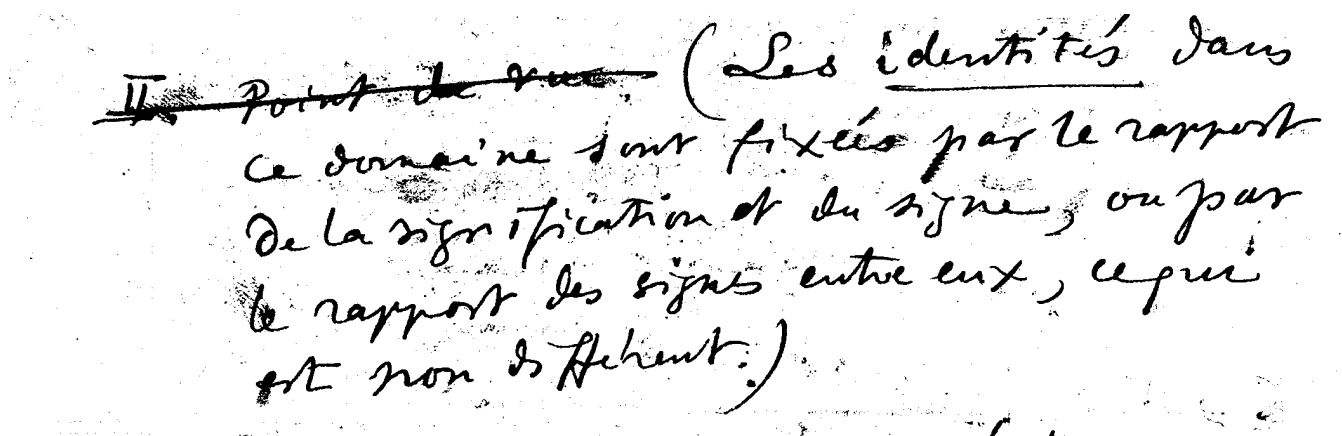 II. Point de vue. (Les identités dans
ce domaine sont fixées par le rapport
de la signification et du signe, ou par
le rapport des signes entre eux, ce qui
est non différent.)